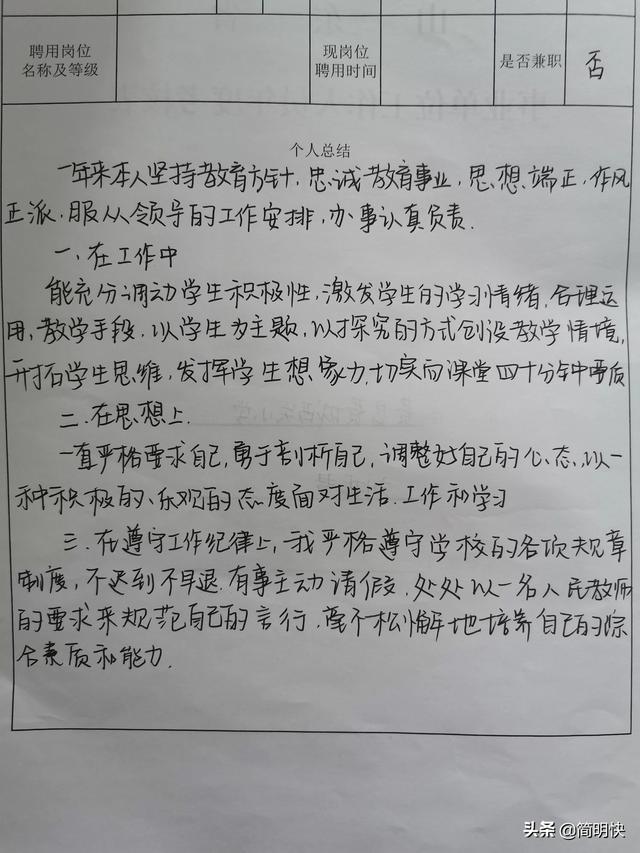 聘用岗位
名称及等级
现岗位
聘用时间
是否兼职
否
个人总结
一年来本人坚持教育方针，忠诚教育事业，思想端正，作风
正派，服从领导的工作安排，办事认真负责.
一、在工作中
能充分调动学生积极性，激发学生的学习情绪，合理运
用，教学手段，以学生为主题，以探究的方式创设教学情境，
开拓学生思维，发挥学生想象力，切实向课堂四十分钟中要质
二、在思想上.
一直严格要求自己，勇于剖析自己，调整好自己的心态，以一
种积极的、乐观的态度面对生活、工作和学习
三、在遵守工作纪律上，我严格遵守学校的各项规章
制度，不迟到不早退.有事主动请假，处处以一名人民教师
的要求来规范自己的言行，毫不松懈地培养自己的综
合素质和能力.
头条 @简明快